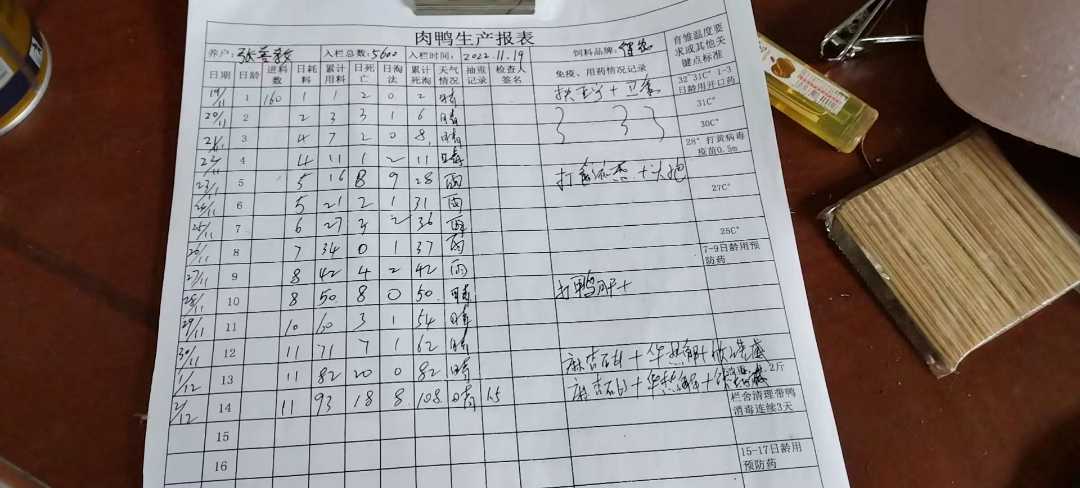 肉鸭生产报表
养户: 入栏总数:5600 入栏时间: 2022.11.19 饲料品牌: 育雏温度要求或其他关键点标准
日期 日龄 进料数 日耗料 累计用料 日死亡 日淘汰 累计死淘 天气情况 抽重记录 检查人签名 免疫、用药情况记录
19/11 1 160 1 1 2 0 2 晴 32°31C° 1-3日龄用开口药
20/11 2 2 3 3 1 6 晴 31C°
21/11 3 4 7 2 0 8 晴 30C°
22/11 4 4 11 1 2 11 晴 28° 打黄病毒疫苗0.5m
23/11 5 5 16 8 9 28 雨 打
24/11 6 5 21 2 1 31 雨 27C°
25/11 7 6 27 3 2 36 雨 25C°
26/11 8 7 34 0 1 37 雨 7-9日龄用预防药
27/11 9 8 42 4 2 42 雨
28/11 10 8 50 8 0 50 晴 打鸭肝+
29/11 11 10 60 3 1 54 晴
30/11 12 11 71 7 1 62 晴
1/12 13 11 82 20 0 82 晴 2斤
2/12 14 11 93 18 8 108 晴 1.5 栏舍清理带鸭消毒连续3天
15
16 15-17日龄用预防药